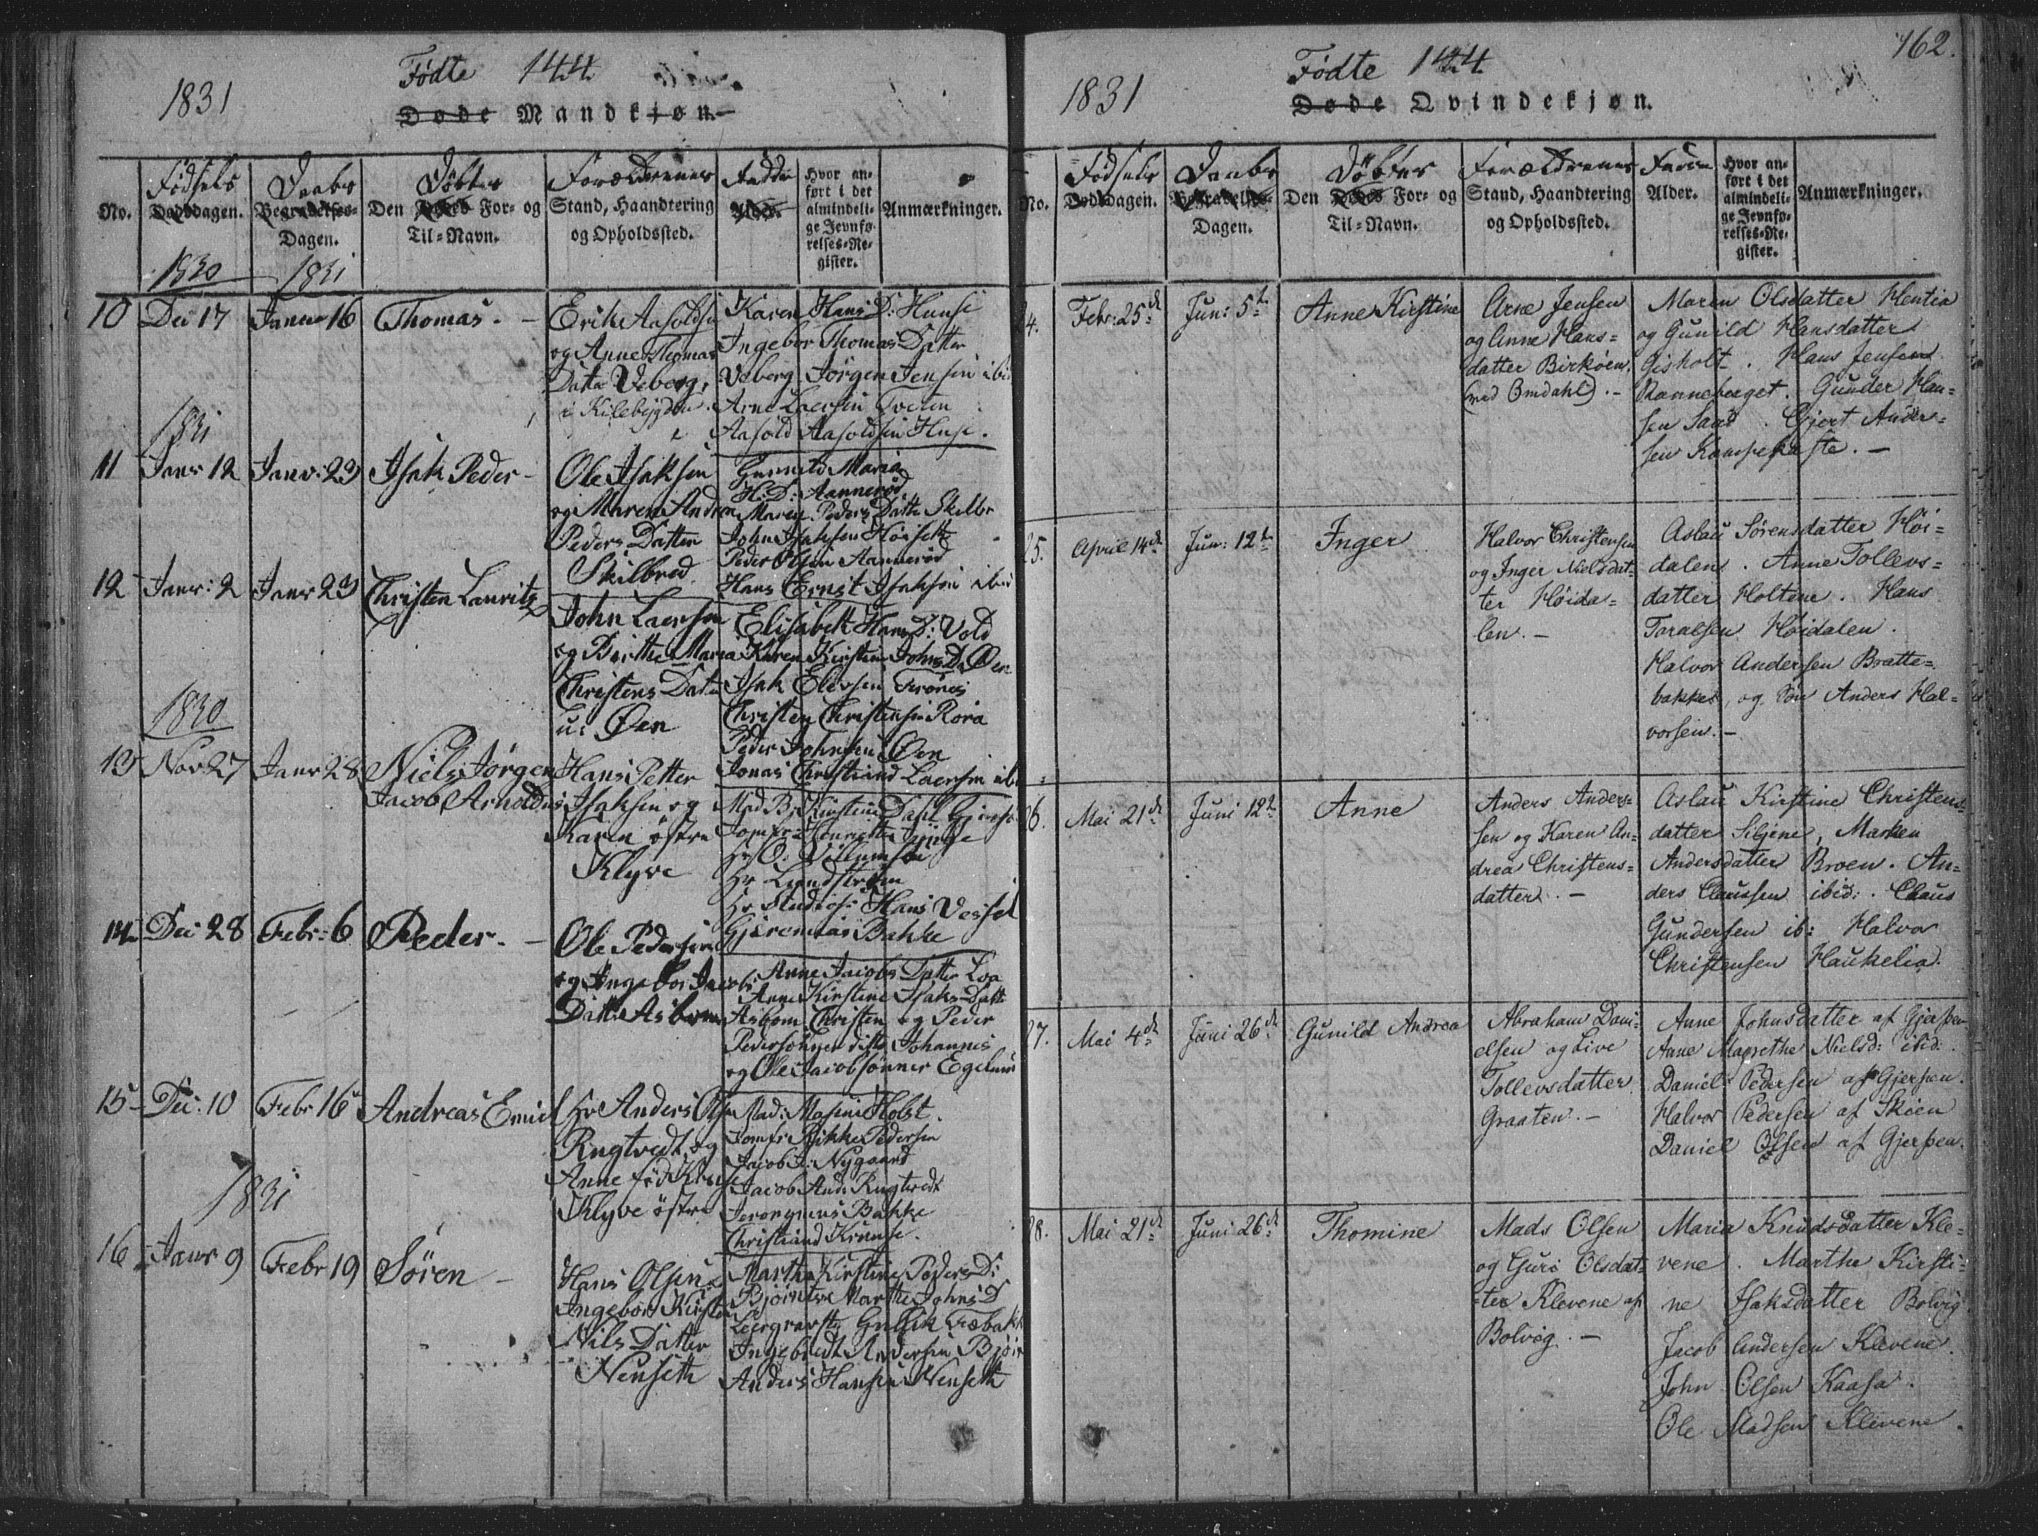 1831
Födte 144
Døde Mandkjøn.
No.
Fødsels
Dødsdagen.
Daabs
Begravelses-
Dagen.
Döbtes
Den Dødes For- og
Til-Navn.
Forældrenes
Stand, Haandtering
og Opholdssted.
Faddere
Alder.
Hvor an-
ført i det
almindeli-
ge Jevnfø-
relses-Re-
gister.
Anmærkninger.
1830 1831
10 Dec 17 Janr 16 Thomas. -
Erik Aasoldsen
og Anne Thomas
Datter Veborg,
i Kilebygden.
Karen Hans D: Hunse
Ingebor Thomas Datter
Veberg Jørgen Jensen ibid
Arne Laersen Tveten
Aasold Aasoldsen Huse.
1831
11 Janr 12 Janr: 23 Isak Peder -
Ole Isaksen
og Maren Andrea
Peders Datter
Skilbred
Gunnild Maria
H: D: Aannerød
Maren Peders Datter Skilbr
John Isaksen Høisett
Peder Olsen Aannerød
Hans Ernst Isaksen ibid
12 Janr: 2 Janr 23 Christen Lauritz
John Laersen
og Birthe Maria
Christens Datter
u: Øen
Elisabeth Hans D: Vold
Karen Kirstine Johns D Øen
Isak Elevsen Grønes
Christen Christensen Rora
Peder Johnsen Øen
Jonas Christiand Laersen ibid
1830
13 Nov 27 Janr 28 Niels Jørgen
Jacob Arnoldus
Hans Petter
Isaksen og
Karen østre
Klyve
Mad Bj Kirstine Dahl Gjerpe
Jomfr: Henriette Gjerpe
Hr O: Villumsen
Hr Lundstrøm
Hr Studios: Hans Vessel
Gjeremias Bakke
14 Dec 28 Febr: 6 Peder. -
Ole Pedersen
og Ingebor Jacobs
Datter Asbom
Anne Jacobs Datter Loa
Anne Kirstine Isaks Datt
Asbom, Christen og Peder
Pedersønner disto Johannes
og Ole Jacobsønner
15 Dec: 10 Febr 16 Andreas Emiel
Hr Anders Olsen
Rugtvedt og
Anne fød Kruse
Klyve østre
Mad: Masine Holst
Jomfr Rikke Pedersen
Jacob J: Nygaard
Jacob And: Rugtvedt
Jeronymus Bakke
Christiand Kruuse.
1831
16 Janr 9 Febr 19 Søren -
Hans Olsen
Ingebor Kirsten
Nils Datter
Nenseth
Marthe Kirstine Peders D:
Bjørntve Marthe Johns D
Gullik Træbakk
Ingebredt Andersen
Anders Hansen Nenseth
162.
1831
Födte 144
Døde Qvindekjøn.
No.
Fødsels
Dødsdagen.
Daabs
Begravelses-
Dagen.
Döbtes
Den Dødes For- og
Til-Navn.
Forældrenes
Stand, Haandtering
og Opholdssted.
Faddere
Alder.
Hvor an-
ført i det
almindeli-
ge Jevnfø-
relses-Re-
gister.
Anmærkninger.
24. Febr: 25de Jun: 5te Anne Kirstine
Arne Jensen
og Anne Hans-
datter Birkøen,
(ved Omdahl). -
Maren Olsdatter Hentia
og Gunild Hansdatter
Gisholt. Hans Jensen
Ranneberget. Gunder Han-
sen Sand. Gjert Ander-
sen Kampekaste. -
25. April 14de Jun: 12te Inger
Halvor Christensen
og Inger Nielsdat-
ter Høida-
len. -
Aslau Sørensdatter Høi-
dalen. Anne Tollevs-
datter Holtene. Hans
Toralsen Høidalen.
Halvor Andersen Bratte-
bakken, og Søn Anders Hal-
vorsen. -
26. Mai 21de Juni 12te Anne
Anders Anders-
sen og Karen An-
drea Christens-
datter. -
Aslau Kirstine Christens-
datter Siljene, Marken
Andersdatter Broen. An-
ders Claussen ibid: Claus
Gundersen ib: Halvor
Christensen Haukelia.
27. Mai 4de Juni 26de Gunild Andrea
Abraham Dani-
elsen og Live
Tollevsdatter
Graaten. -
Anne Johnsdatter af Gjerpen
Anne Magrethe Nielsd: ibid:
Daniel Pedersen af Gjerpen.
Halvor Pedersen af Skien
Daniel Olsen af Gjerpen.
28. Mai 21de Juni 26de Thomine
Mads Olsen
og Guri Olsdat-
ter Klevene af
Bolvig. -
Maria Knudsdatter Kle-
vene. Marthe Kirsti-
ne Isaksdatter Bolvig
Jacob Andersen Klevene.
John Olsen Kaasa.
Ole Madsen Klevene.